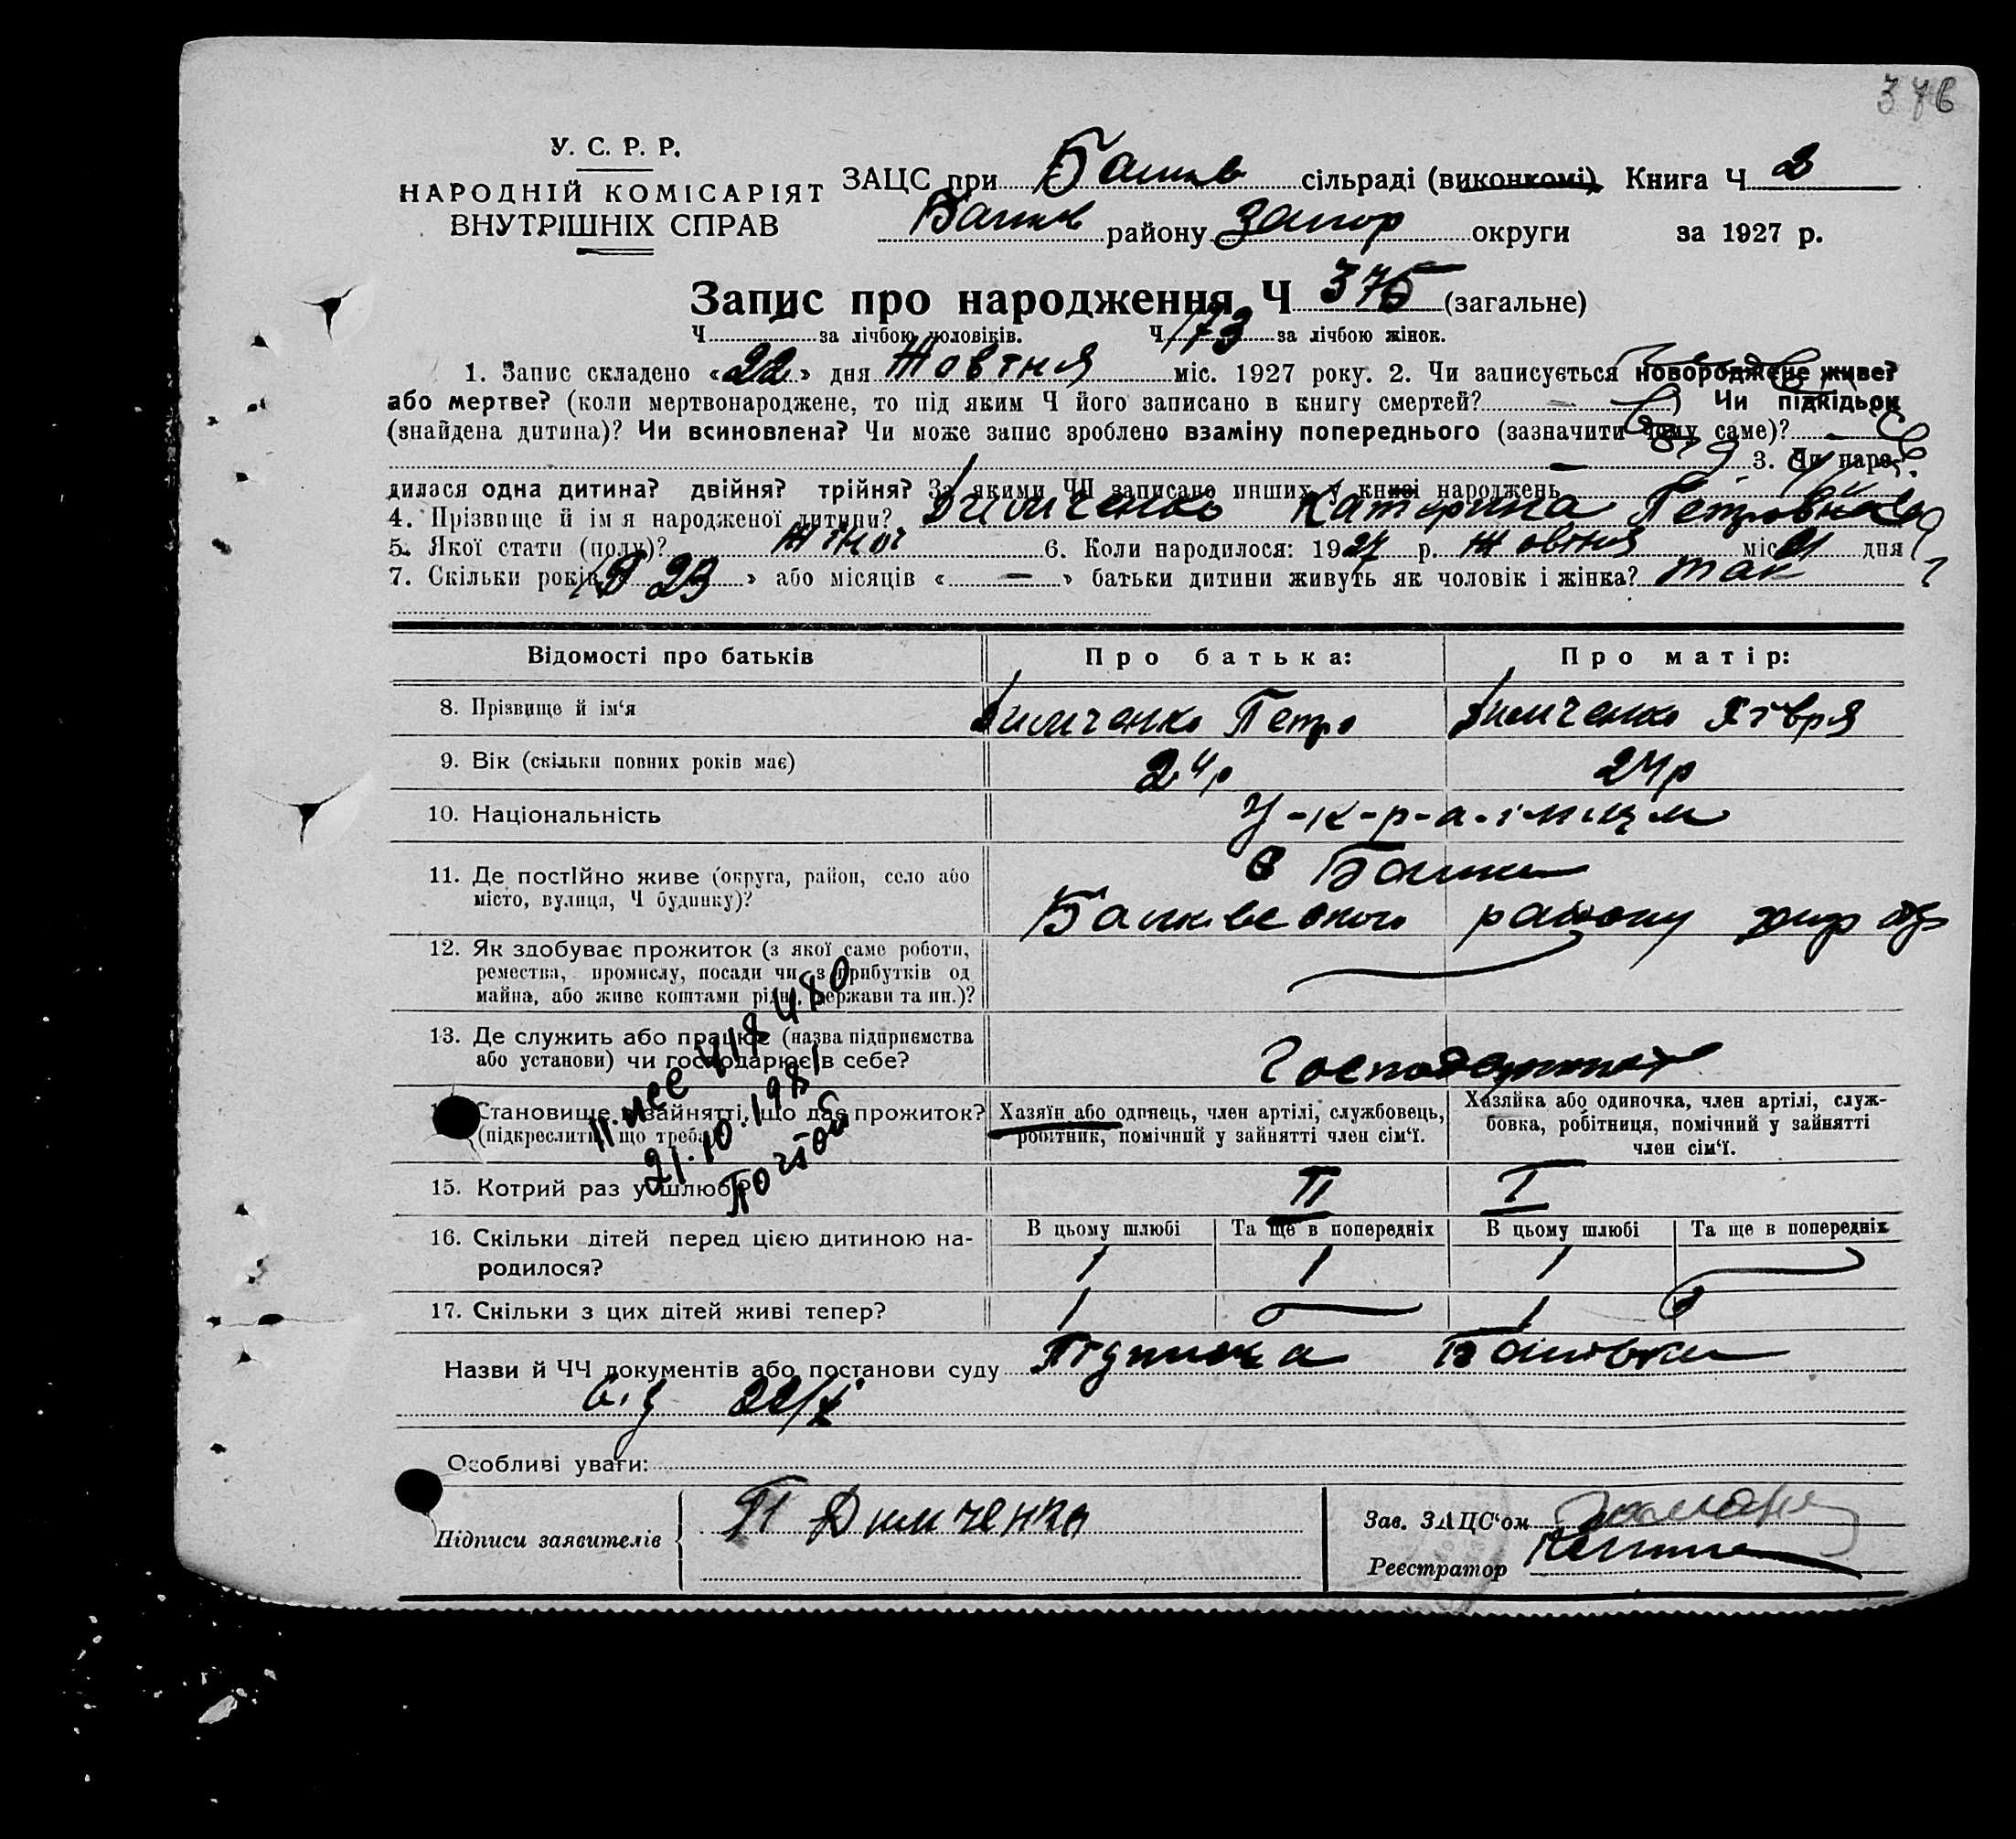 376
У. С. Р. Р.
НАРОДНІЙ КОМІСАРІЯТ
ВНУТРІШНІХ СПРАВ
ЗАЦС при сільраді (виконкомі) Книга Ч 2
району Запор округи за 1927 р.
Запис про народження Ч 375 (загальне)
Ч за лічбою чоловіків. Ч 173 за лічбою жінок.
1. Запис складено «22» дня Жовтня міс. 1927 року. 2. Чи записується новороджене живе?
або мертве? (коли мертвонароджене, то під яким Ч його записано в книгу смертей? — ) Чи підкідьок
(знайдена дитина)? Чи всиновлена? Чи може запис зроблено взаміну попереднього (зазначити чому саме)? —
3. Чи наро-
дилася одна дитина? двійня? трійня? За якими ЧЧ записано инших у книзі народжень
4. Прізвище й ім'я народженої дитини? Димченко Катерина Петровна
5. Якої стати (полу)? жіноч 6. Коли народилося: 1927 р. жовтня міс. 21 дня
7. Скільки років 23 » або місяців « — » батьки дитини живуть як чоловік і жінка? так
Відомості про батьків Про батька: Про матір:
8. Прізвище й ім'я Димченко Петро Димченко Явря
9. Вік (скільки повних років має) 24р 24р
10. Національність У-к-р-а-інци
11. Де постійно живе (округа, район, село або
місто, вулиця, Ч будинку)?
району
12. Як здобуває прожиток (з якої саме роботи,
ремества, промислу, посади чи з прибутків од
майна, або живе коштами рідні, держави та ин.)?
13. Де служить або працює (назва підприємства
або установи) чи господарює в себе?
11. мес 418480
21.10.1981
14. Становище в зайнятті, що дає прожиток?
(підкреслити, що треба)
Хазяїн або одинець, член артілі, службовець,
робітник, помічний у зайнятті член сім'ї.
Хазяйка або одиночка, член артілі, служ-
бовка, робітниця, помічний у зайнятті
член сім'ї.
15. Котрий раз у шлюбі? II I
16. Скільки дітей перед цією дитиною на-
родилося?
В цьому шлюбі Та ще в попередніх В цьому шлюбі Та ще в попередніх
1 1 1
17. Скільки з цих дітей живі тепер? 1 1
Назви й ЧЧ документів або постанови суду Підписка
від 22/X
Особливі уваги:
Підписи заявителів П Димченко
Зав. ЗАЦС'ом
Реєстратор